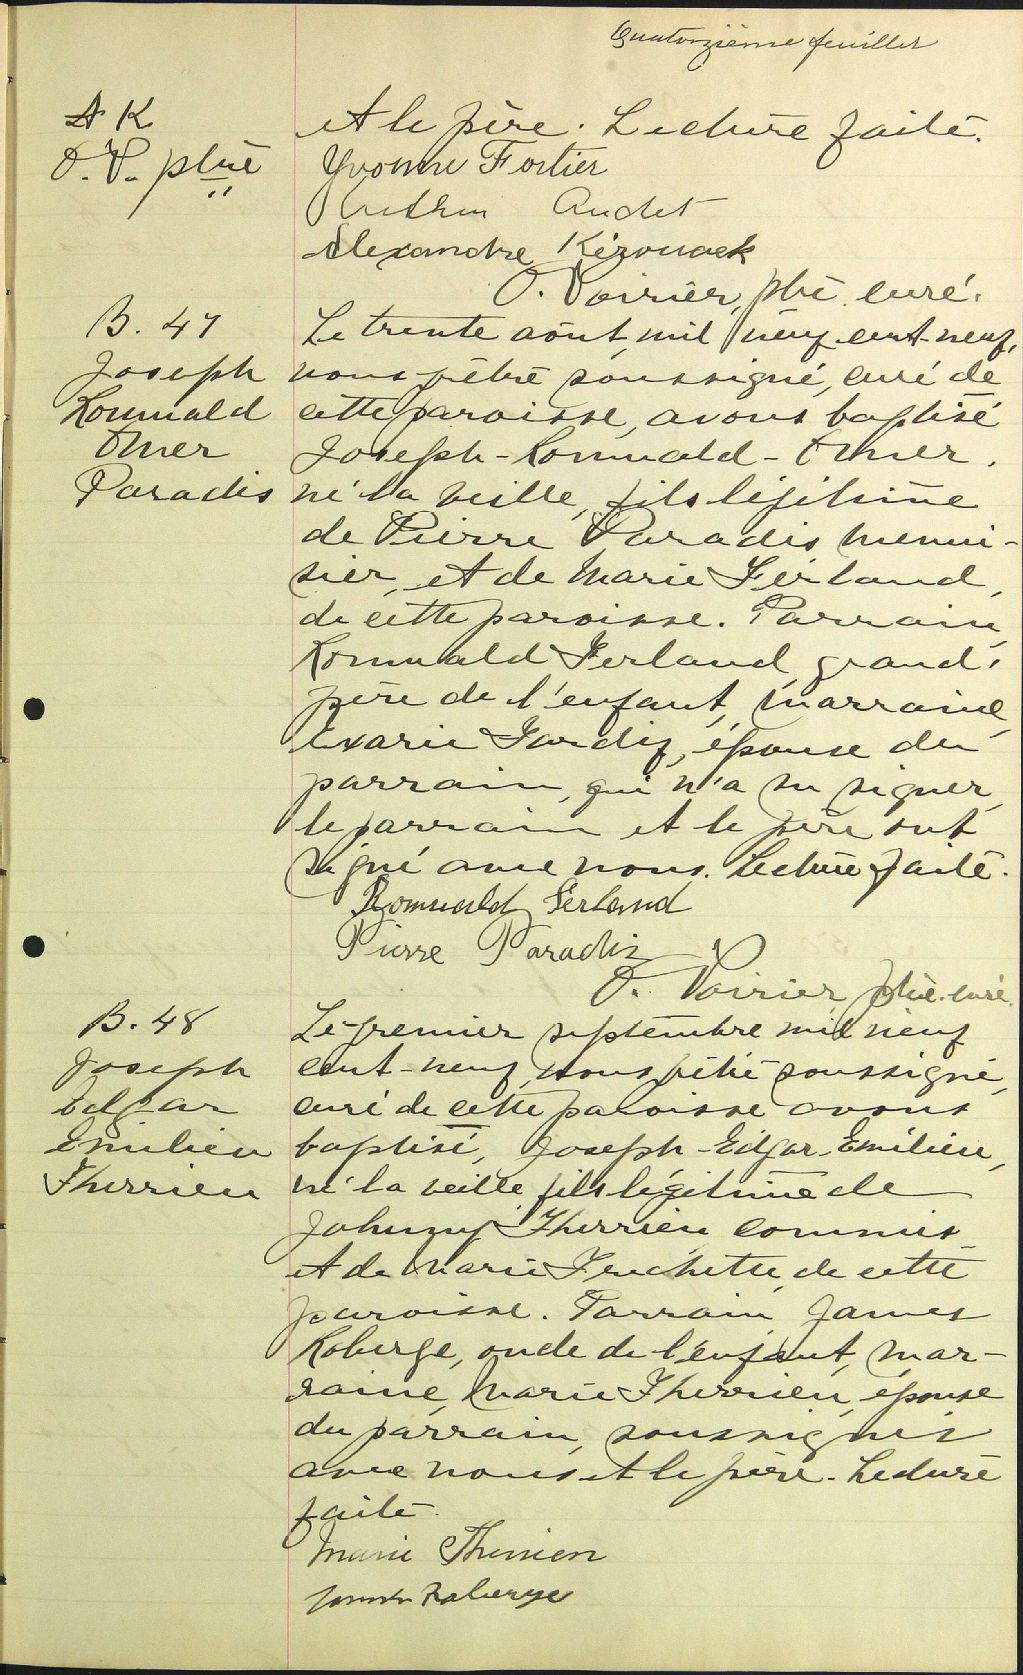 Quatorzième feuillet
A. K.
O. P. ptre
et le père. Lecture faite.
Yvonne Fortier
Arthur Audet
Alexandre Kérouack
O. Poirier, ptre curé.
B. 47
Joseph
Romuald
Omer
Paradis
Le trente août, mil neuf cent-neuf,
nous prêtre soussigné, curé de
cette paroisse, avons baptisé
Joseph-Romuald-Omer,
né la veille, fils légitime
de Pierre Paradis menui-
sier, et de Marie Ferland,
de cette paroisse. Parrain,
Romuald Ferland, grand-
père de l'enfant, marraine,
Exarie Tardif, épouse du
parrain, qui n'a su signer,
le parrain et le père ont
signé avec nous. Lecture faite.
Romuald Ferland
Pierre Paradis
O. Poirier, ptre. curé.
B. 48
Joseph
Edgar
Emilien
Therrien
Le premier septembre mil neuf
cent-neuf, nous prêtre soussigné,
curé de cette paroisse avons
baptisé, Joseph-Edgar-Emilien,
né la veille, fils légitime de
Johnny Therrien commis
et de Marie Frechette, de cette
paroisse. Parrain, James
Roberge, oncle de l'enfant, mar-
raine, Marie Therrien, épouse
du parrain, soussignés
avec nous et le père. Lecture
faite.
Marie Therrien
James Roberge